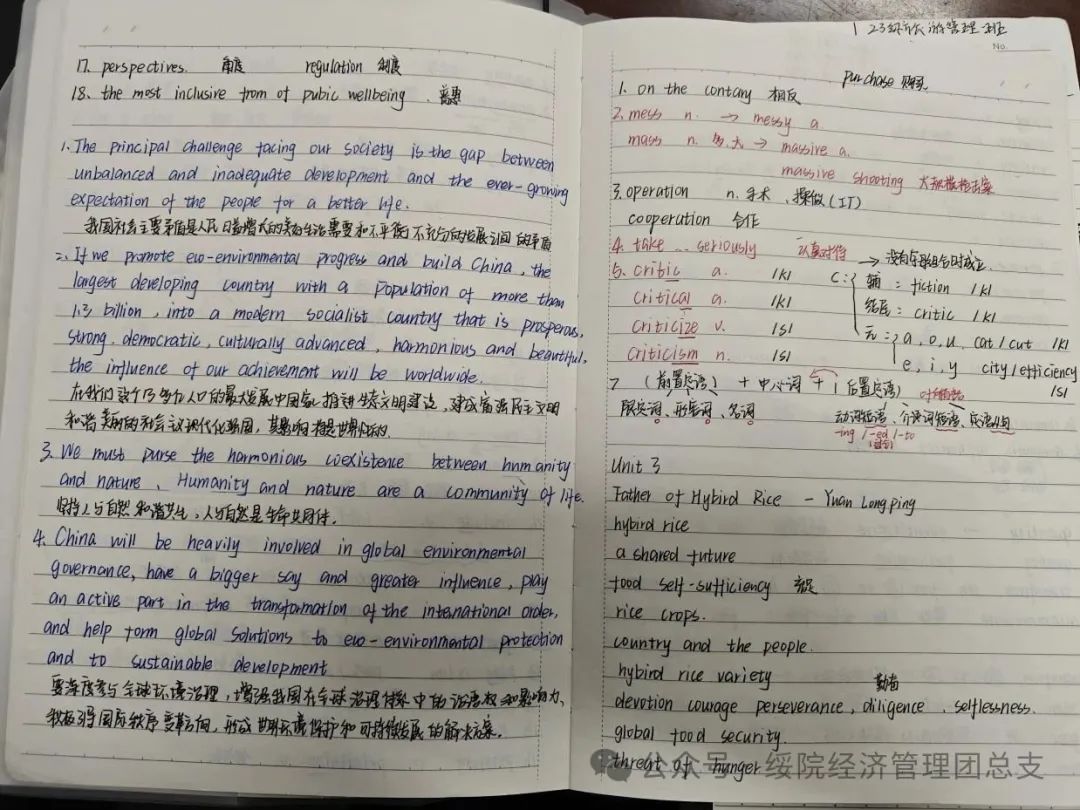 17. perspectives. 角度 regulation 制度
18. the most inclusive from of pubic wellbeing . 普惠
1. The principal challenge facing our society is the gap between
unbalanced and inadequate development and the ever-growing
expectation of the people for a better life.
我国社会主要矛盾是人民日益增长的美好生活需要和不平衡不充分的发展之间的矛盾
2. If we promote eco-environmental progress and build China, the
largest developing country with a population of more than
1.3 billion, into a modern socialist country that is prosperous,
strong, democratic, culturally advanced, harmonious and beautiful,
the influence of our achievement will be worldwide.
在我们这个13多亿人口的最大发展中国家推进生态文明建设,建成富强民主文明
和谐美丽的社会主义现代化强国,其影响将是世界性的.
3. We must purse the harmonious coexistence between humanity
and nature、Humanity and nature are a community of life.
坚持人与自然和谐共生,人与自然是生命共同体.
4. China will be heavily involved in global environmental
governance, have a bigger say and greater influence, play
an active part in the transformation of the international order,
and help form global solutions to eco-environmental protection
and to sustainable development
要深度参与全球环境治理,增强我国在全球治理体系中的话语权和影响力,
积极引导国际秩序变革方向,形成世界环境保护和可持续发展的解决方案.
1 23级 旅游管理 班
No.
purchase 购买
1. on the contary 相反
2. mess n. → messy a
mass n. 多,大 → massive a.
massive shooting 大规模枪击案
3. operation n. 手术、操做(IT)
cooperation 合作
4. take … seriously 认真对待
5. critic a. /k/
critical a. /k/
criticize v. /s/
criticism n. /s/
→ 没有字母组合时成立.
C: 辅: fiction /k/
结尾: critic /k/
元: a, o, u, cat/cut /k/
e, i, y city/efficiency /s/
7 (前置定语) + 中心词 + (后置定语)
限定词、形容词、名词 动词短语、介词短语、定语从句
-ing /-ed /-to
Unit 3
Father of Hybird Rice - Yuan Longping
hybird rice
a shared future
food self-sufficiency 充足
rice crops.
country and the people.
hybird rice variety 勤奋
devotion courage perseverance, diligence, selflessness.
global food security.
threat of hunger
公众号 · 绥院经济管理团总支